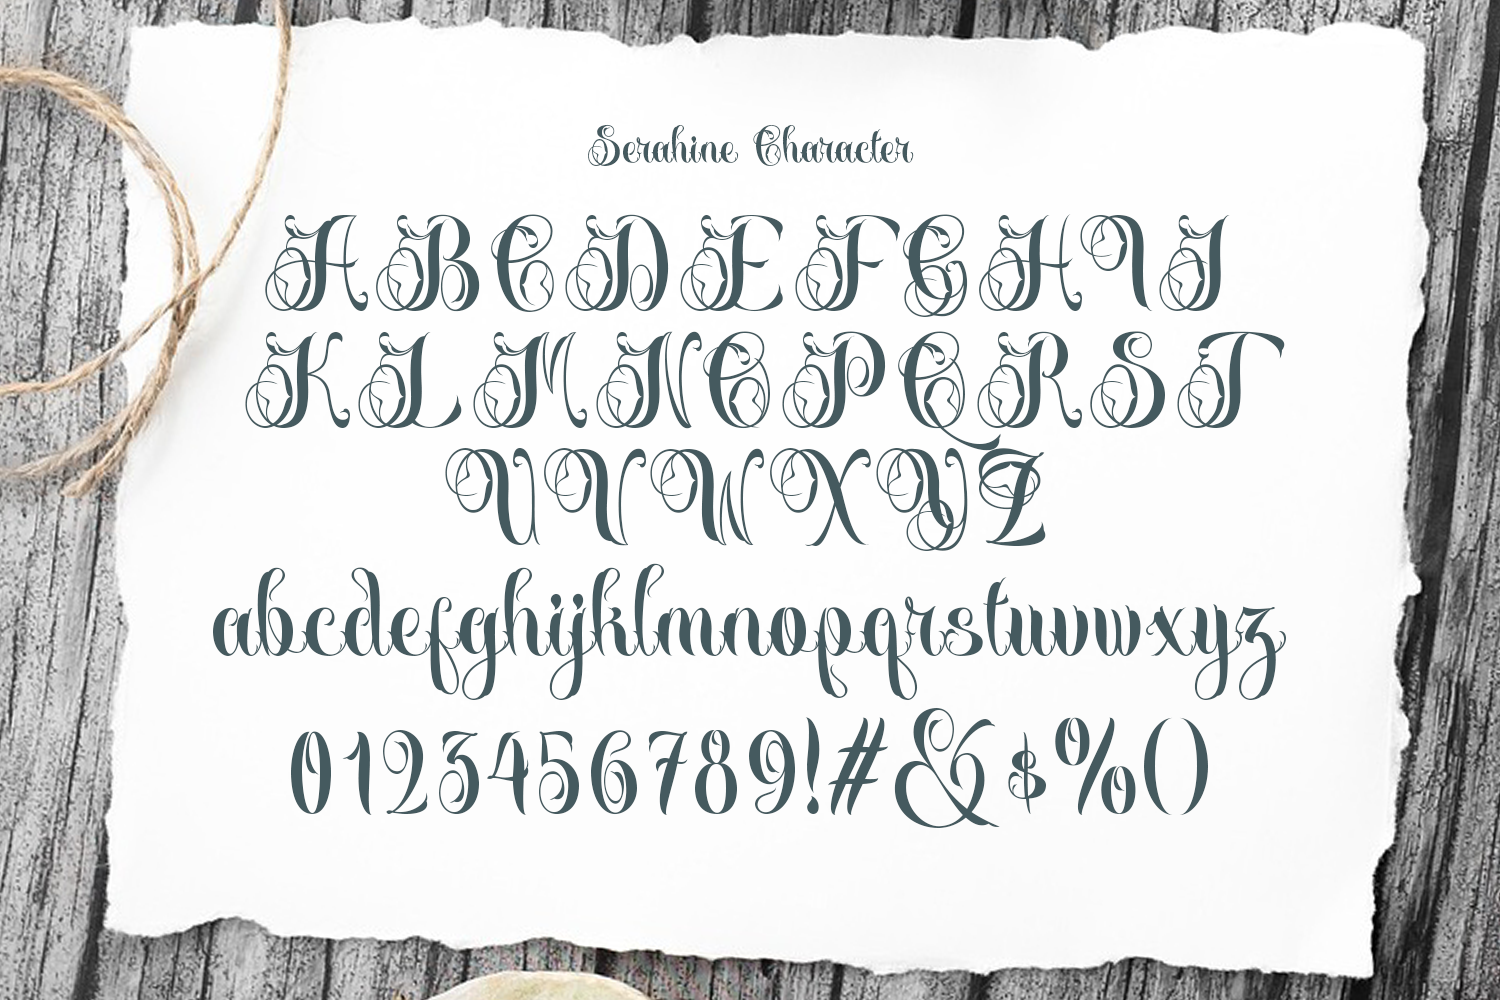 Serahine Character
A B C D E F G H I J
K L M N O P Q R S T
U V W X Y Z
abcdefghijklmnopqrstuvwxyz
0123456789!#&$%()